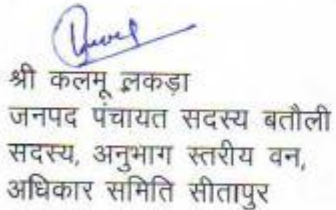 श्री कलमू लकड़ा
जनपद पंचायत सदस्य बतौली
सदस्य, अनुभाग स्तरीय वन,
अधिकार समिति सीतापुर